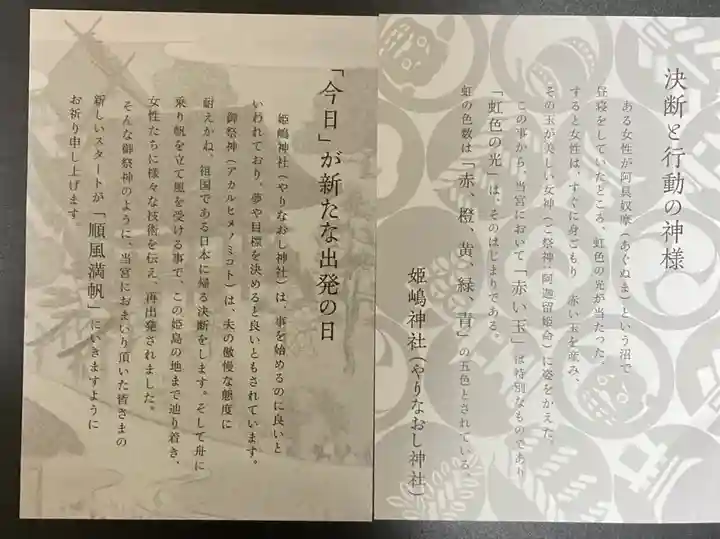 決断と行動の神様
ある女性が阿具奴摩(あぐぬま)という沼で
昼寝をしていたところ、虹色の光が当たった。
すると女性は、すぐに身ごもり 赤い玉を産み、
その玉が美しい女神(ご祭神:阿迦留姫命)に姿をかえた。
この事から、当宮において「赤い玉」は特別なものであり
「虹色の光」は、そのはじまりである。
虹の色数は「赤、橙、黄、緑、青」の五色とされている。
姫嶋神社(やりなおし神社)
「今日」が新たな出発の日
姫嶋神社(やりなおし神社)は、事を始めるのに良いと
いわれており、夢や目標を決めると良いともされています。
御祭神(アカルヒメノミコト)は、夫の傲慢な態度に
耐えかね、祖国である日本に帰る決断をします。そして舟に
乗り帆を立て風を受ける事で、この姫島の地まで辿り着き、
女性たちに様々な技術を伝え、再出発されました。
そんな御祭神のように、当宮におまいり頂いた皆さまの
新しいスタートが「順風満帆」にいきますように
お祈り申し上げます。